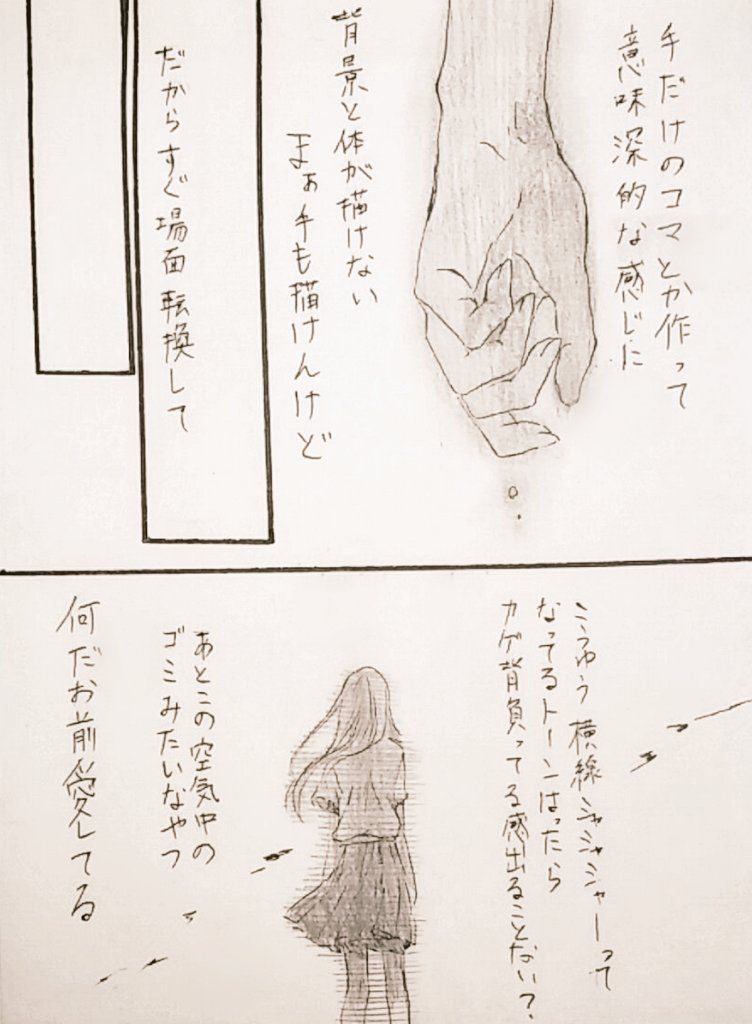 手だけのコマとか作って
意味深的な感じに
背景と体が描けない
まぁ手も描けんけど
だからすぐ場面転換して
こうゆう横線シャシャシャーって
なってるトーンはったら
カゲ背負ってる感出ることない?
あとこの空気中の
ゴミみたいなやつ
何だお前愛してる